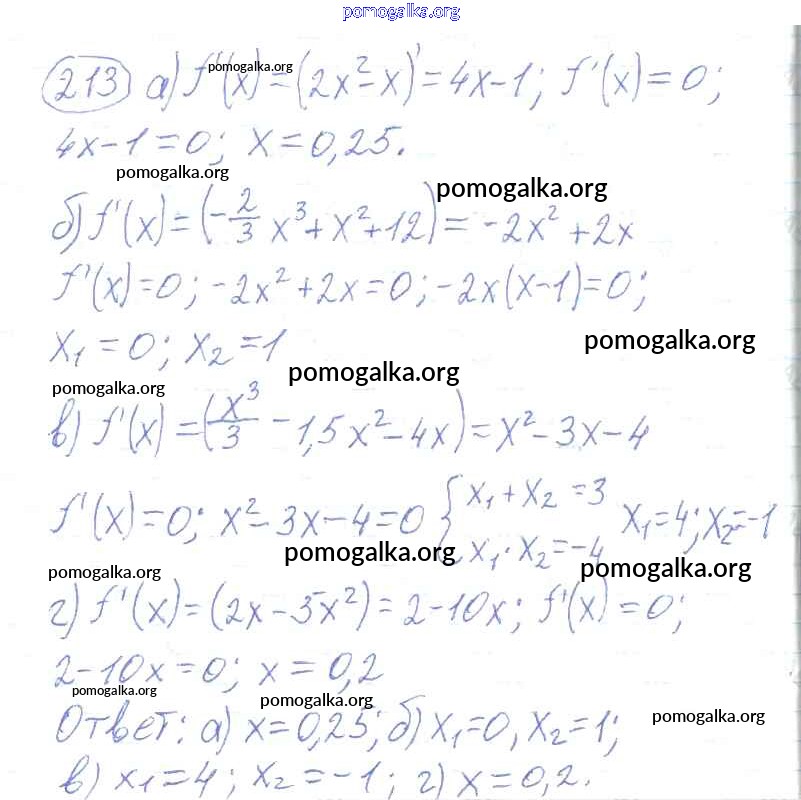 pomogalka.org
213 а) f'(x) = (2x² - x)' = 4x - 1; f'(x) = 0;
pomogalka.org
4x - 1 = 0; x = 0,25.
pomogalka.org
pomogalka.org
б) f'(x) = (-2/3 x³ + x² + 12) = -2x² + 2x
f'(x) = 0; -2x² + 2x = 0; -2x(x - 1) = 0;
x₁ = 0; x₂ = 1
pomogalka.org
pomogalka.org
pomogalka.org
в) f'(x) = (x³/3 - 1,5x² - 4x) = x² - 3x - 4
f'(x) = 0; x² - 3x - 4 = 0 { x₁ + x₂ = 3
x₁ · x₂ = -4
x₁ = 4; x₂ = -1
pomogalka.org
pomogalka.org
pomogalka.org
г) f'(x) = (2x - 5x²) = 2 - 10x; f'(x) = 0;
2 - 10x = 0; x = 0,2
pomogalka.org
pomogalka.org
pomogalka.org
Ответ: а) x = 0,25; б) x₁ = 0, x₂ = 1;
в) x₁ = 4; x₂ = -1; г) x = 0,2.